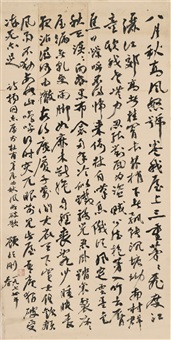 八月秋高風怒號卷我屋上三重茅茅飛度江
灑江郊高者挂罥長林梢下者飄轉沉塘坳南村群
童欺我老無力忍能對面為盜賊公然抱茅入竹去唇
焦口燥呼不得歸來倚杖自歎息俄頃風定雲墨色
秋天漠漠向昏黑布衾多年冷似鐵嬌兒惡臥踏裏裂床
床屋漏無乾處雨腳如麻未斷絕自經喪亂少睡眠長
夜沾濕何由徹安得廣廈千萬間大庇天下寒士俱歡顏
風雨不動安如山嗚呼何時眼前突兀見此屋吾廬獨破受
凍死亦足